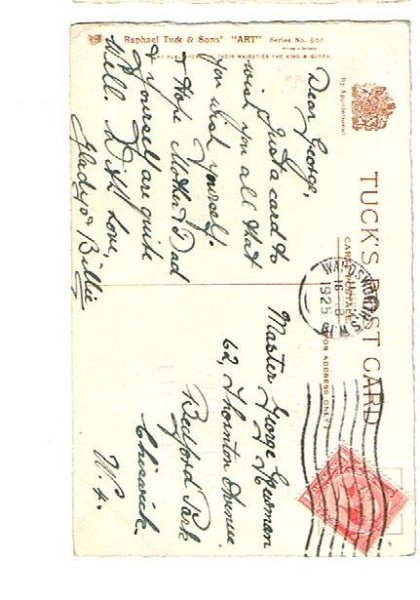 Raphael Tuck & Sons' "ART" Series No. 507
THEIR MAJESTIES THE KING & QUEEN.
By Appointment.
TUCK'S POST CARD
CARTE POSTALE
(FOR ADDRESS ONLY)
WANDSWORTH
1925
S.W.18
Dear George,
Just a card to
wish you all that
you wish yourself.
Hope Mother & Dad
& yourself are quite
well. With Love,
Gladys & Billie
Master George
62, Thornton Avenue
Bedford Park
Chiswick.
W.4.